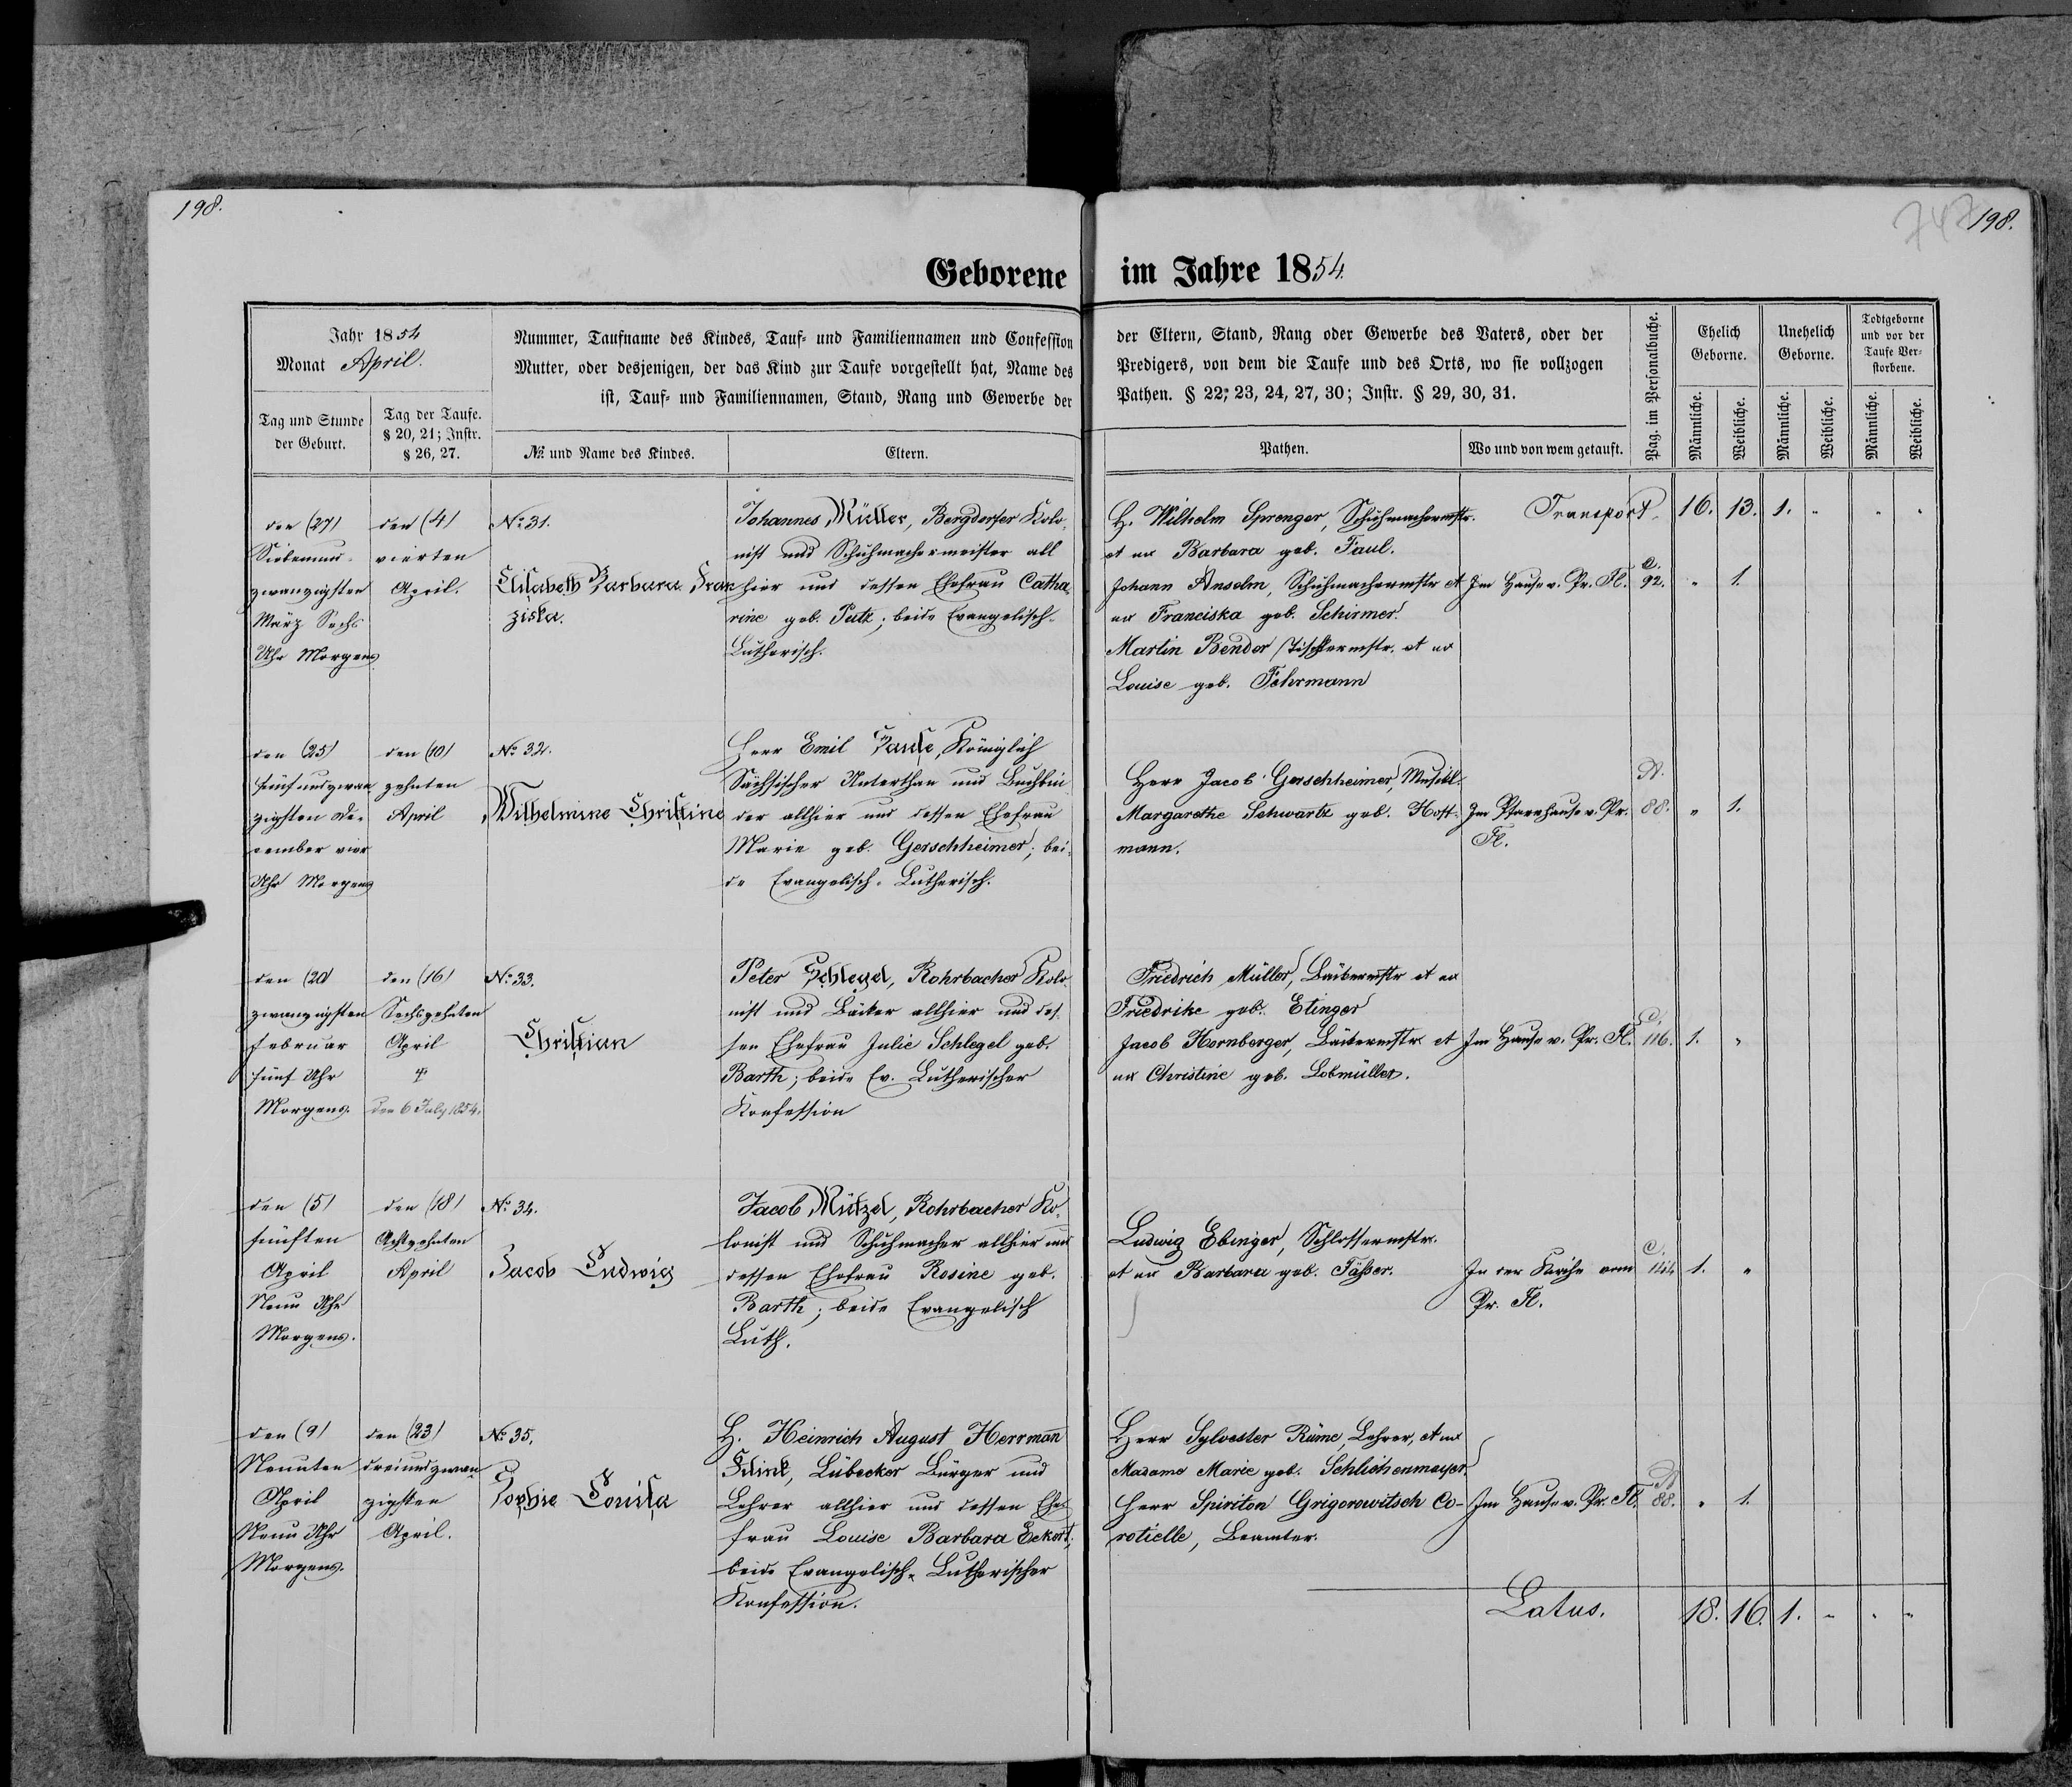 198.
747
198.
Geborene im Jahre 1854.
Jahr 1854
Monat April.
Tag und Stunde
der Geburt.
Tag der Taufe.
§ 20, 21; Instr.
§ 26, 27.
Nummer, Taufname des Kindes, Tauf- und Familiennamen und Confession
Mutter, oder desjenigen, der das Kind zur Taufe vorgestellt hat, Name des
ist, Tauf- und Familiennamen, Stand, Rang und Gewerbe der
№ und Name des Kindes.
Eltern.
der Eltern, Stand, Rang oder Gewerbe des Vaters, oder der
Predigers, von dem die Taufe und des Orts, wo sie vollzogen
Pathen. § 22, 23, 24, 27, 30; Instr. § 29, 30, 31.
Pathen.
Wo und von wem getauft.
Pag. im Personalbuche.
Ehelich
Geborne.
Unehelich
Geborne.
Todtgeborne
und vor der
Taufe Ver-
storbene.
Männliche.
Weibliche.
Männliche.
Weibliche.
Männliche.
Weibliche.
Transport. 16. 13. 1. " " "
den (27)
Siebenund-
zwanzigsten
März Sechs
Uhr Morgens
den (4)
vierten
April.
No 31.
Elisabeth Barbara Fran
ziska.
Johannes Müller, Bergdorfer Kolo-
nist und Schuhmachermeister all
hier und dessen Ehefrau Catha-
rine geb. Putz; beide Evangelisch-
Lutherisch.
H. Wilhelm Sprenger, Schuhmachermstr.
et ux Barbara geb. Faul.
Johann Anselm, Schuhmachermstr et
ux Franciska geb. Schirmer.
Martin Bender, Tischlermstr. et ux
Louise geb. Fehrmann
Im Hause v. Pr. Fl.
C.
92. " 1.
den (25)
fünfundzwan
zigsten De-
cember vier
Uhr Morgens
den (10)
zehnten
April
No 32.
Wilhelmine Christine
Herr Emil Pause, Königlich
Sächsischer Unterthan und Buchbin
der allhier und dessen Ehefrau
Marie geb. Gerschheimer; bei-
de Evangelisch-Lutherisch.
Herr Jacob Gerschheimer,
Margarethe Schwartz geb. Hoff-
mann.
Im Pfarrhause v. Pr.
Fl.
A.
88. " 1.
den (20)
zwanzigsten
Februar
fünf Uhr
Morgens.
den (16)
Sechzehnten
April
†
den 6 July 1854.
No 33.
Christian
Peter Schlegel, Rohrbacher Kolo-
nist und Bäcker allhier und des-
sen Ehefrau Julie Schlegel geb.
Barth; beide Ev. Lutherischer
Konfession
Friedrich Müller, Bäckermstr et ux
Friedrike geb. Etinger
Jacob Hornberger, Bäckermstr et
ux Christine geb. Lobmüller.
Im Hause v. Pr. Fl.
C.
116. 1. "
den (5)
fünften
April
Neun Uhr
Morgens.
den (18)
Achtzehnten
April
No 34.
Jacob Ludwig
Jacob Mützel, Rohrbacher Ko-
lonist und Schuhmacher allhier und
dessen Ehefrau Rosine geb.
Barth; beide Evangelisch
Luth.
Ludwig Ebinger, Schlossermstr.
et ux Barbara geb. Fässer.
In der Kirche vom
Pr. Fl.
C.
1. "
den (9)
Neunten
April
Neun Uhr
Morgens.
den (23)
dreiundzwan
zigsten
April.
No 35.
Sophie Louisa
H. Heinrich August Herrmann
Flink, Lübecker Bürger und
Lehrer allhier und dessen Ehe
frau Louise Barbara Eckert,
beide Evangelisch-Lutherischer
Konfession.
Herr Sylvester Rüme, Lehrer, et ux
Madame Marie geb. Schlichenmayer.
Herr Spiriton Grigorowitsch Co-
rotielle, Beamter.
Im Hause v. Pr. Fl.
A
88. " 1.
Latus. 18. 16. 1. " " "